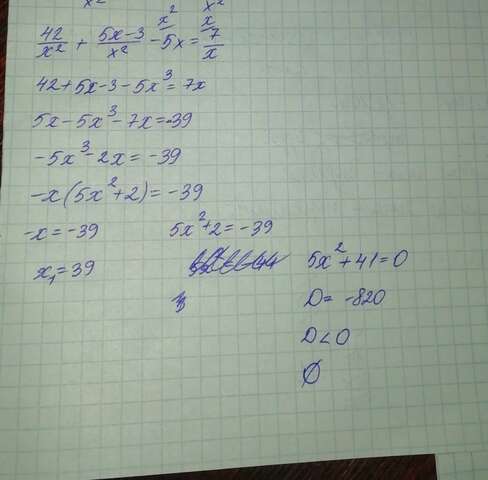 x² x²
42/x² + (5x-3)/x² - 5x^(x² = 7/x^(x
42+5x-3-5x³=7x
5x-5x³-7x=-39
-5x³-2x=-39
-x(5x²+2)=-39
-x=-39 5x²+2=-39
x₁=39 5x²+41=0
D=-820
D<0
∅